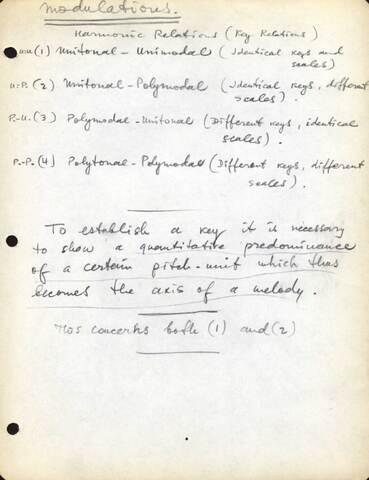 Modulations.
Harmonic Relations (Key Relations)
U.-U. (1) Unitonal - Unimodal (Identical keys and
scales)
U.-P. (2) Unitonal - Polymodal (Identical keys, different
scales).
P.-U. (3) Polymodal - Unitonal (Different keys, identical
scales).
P.-P. (4) Polytonal - Polymodal (Different keys, different
scales).
To establish a key it is necessary
to show a quantitative predominance
of a certain pitch-unit which thus
becomes the axis of a melody.
concerns both (1) and (2)